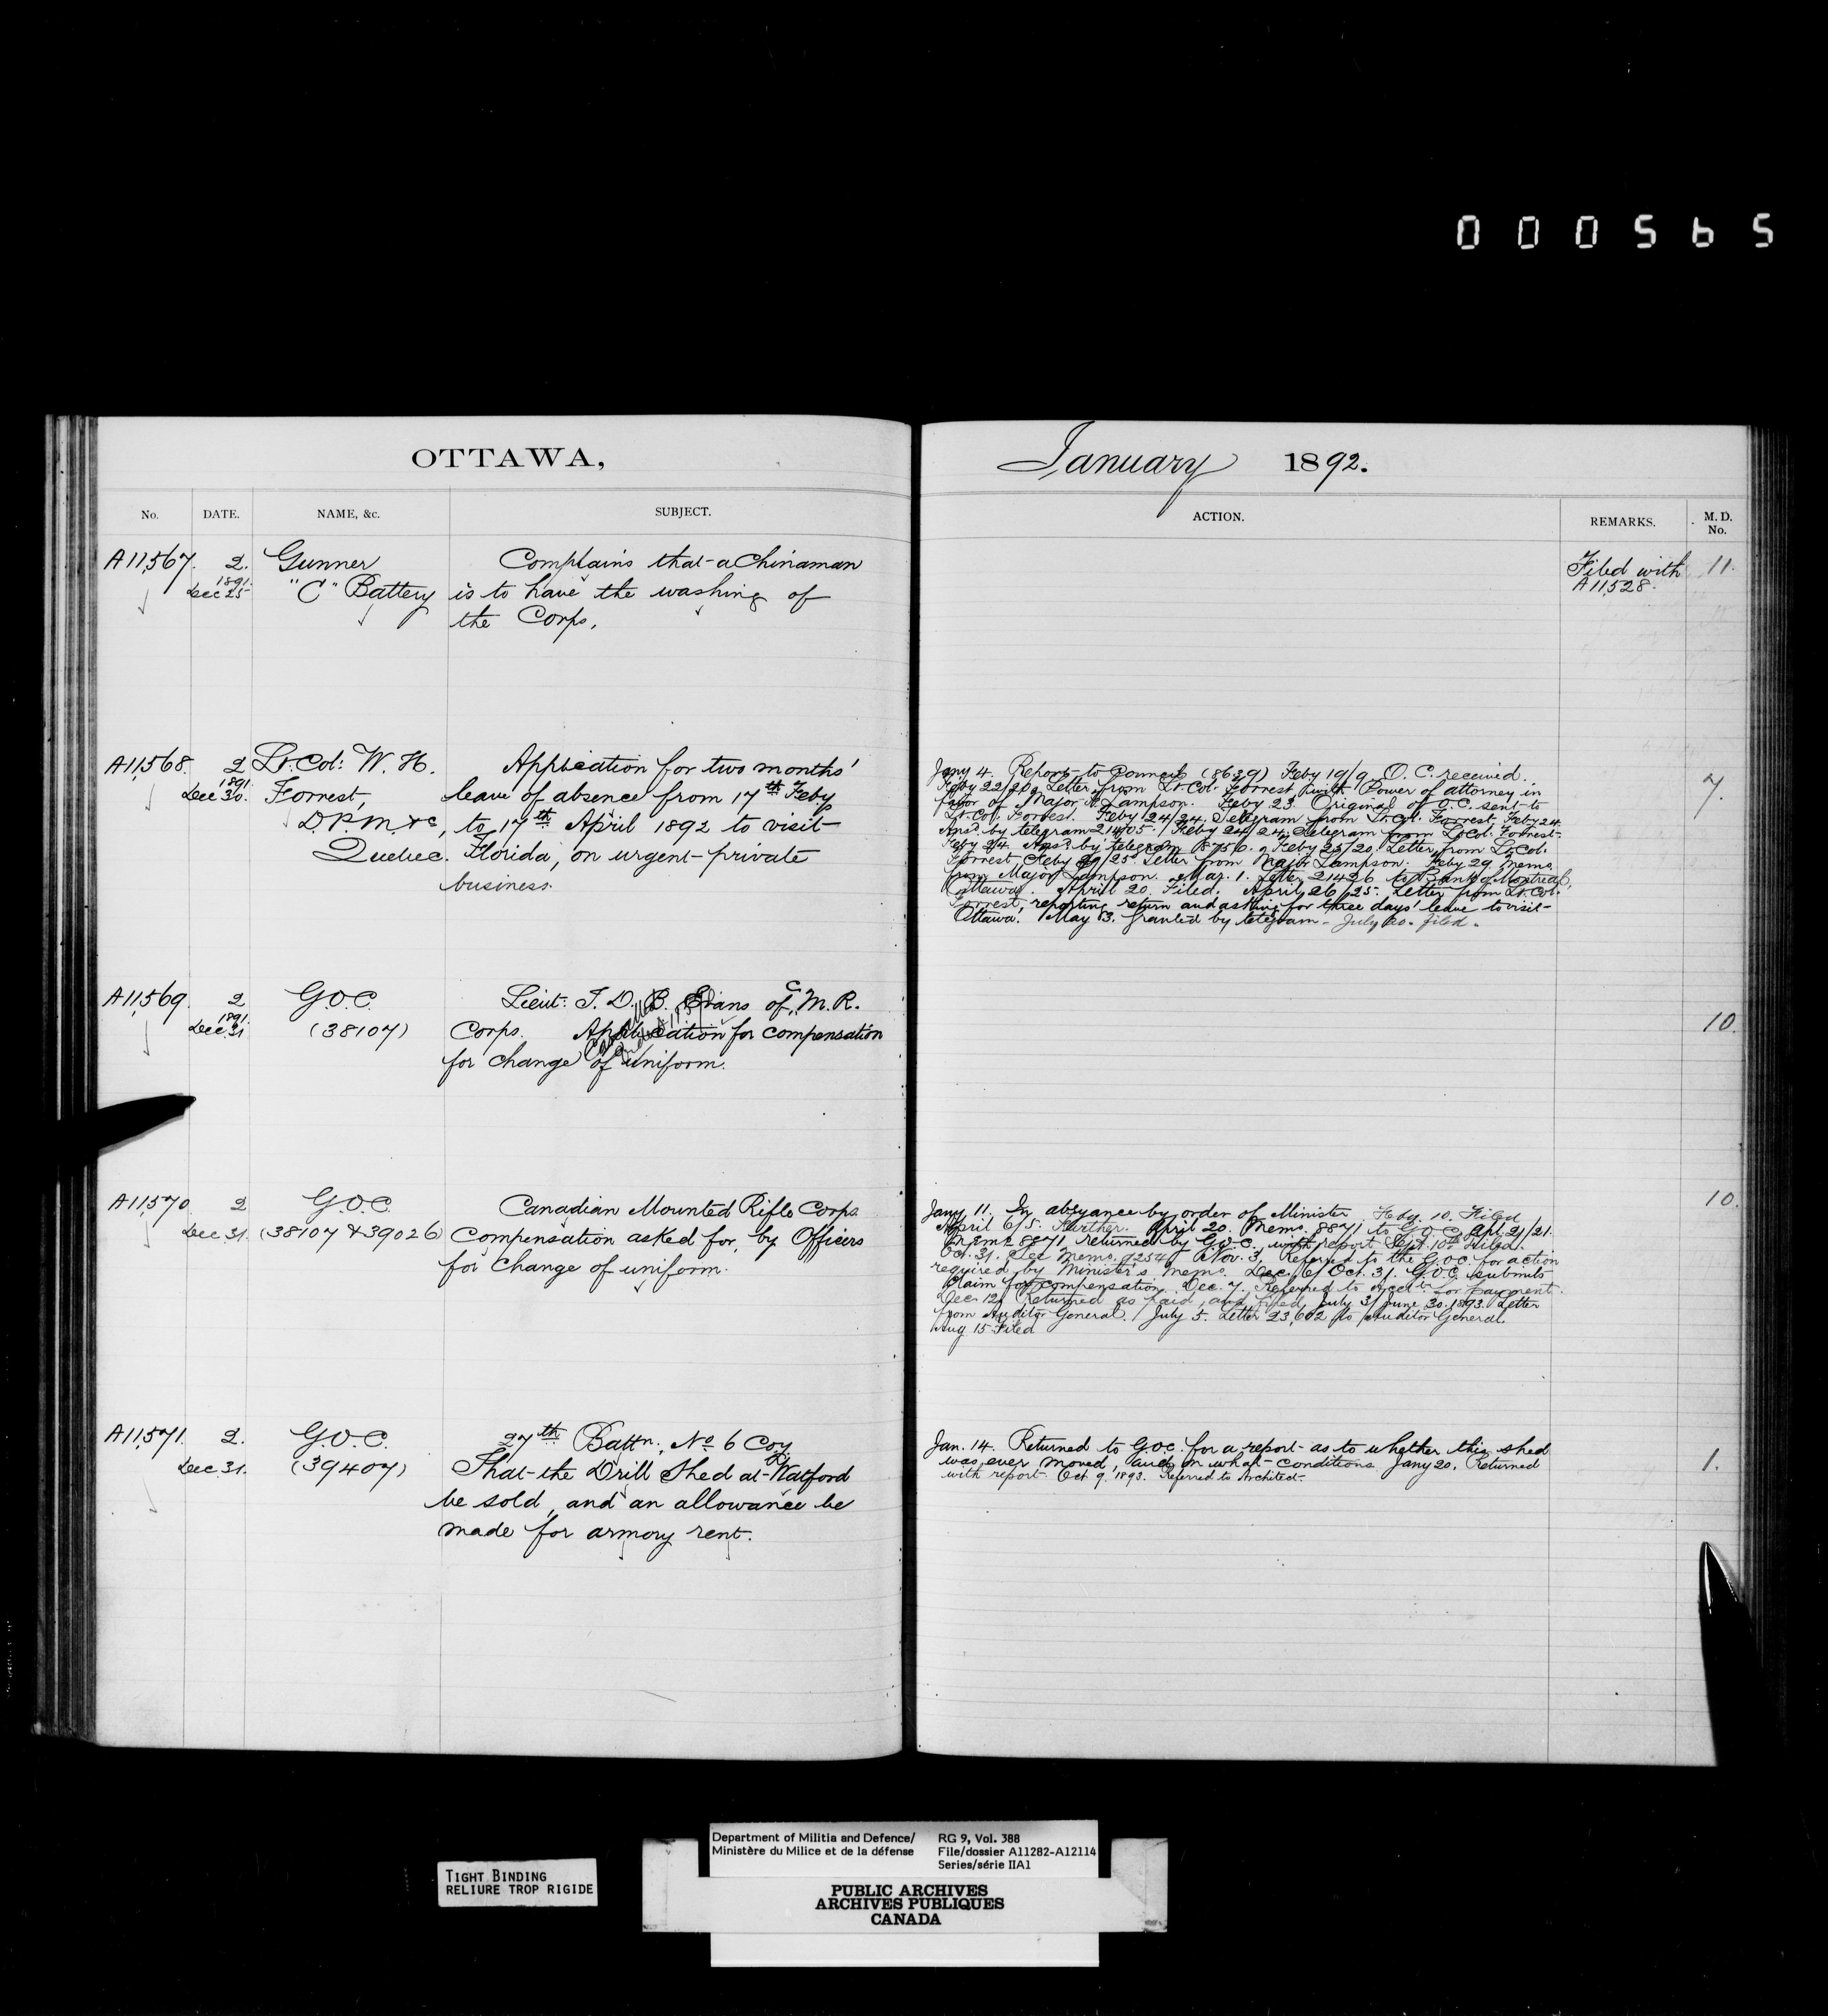 000565
OTTAWA,
January 1892.
No. DATE. NAME, &c. SUBJECT.
ACTION. REMARKS. M.D. No.
A11,567. 2. Gunner Complains that a Chinaman
1891 Dec 25 "C" Battery is to have the washing of
the Corps.
Filed with 11.
A11,528.
A11,568. 2 Lt. Col: W. H. Application for two months'
1891 Dec 30. Forrest, leave of absence from 17th Feby
D.P.M. &c, to 17th April 1892 to visit
Quebec. Florida, on urgent private
business.
Jany 4. Report to Council (8639) Feby 19/9. O.C. received.
Feby 22/20. Letter from Lt. Col. Forrest with Power of attorney in
favor of Major Lampson. Feby 23. Original of O.C. sent to
Lt. Col. Forrest. Feby 24/24. Telegram from Lt. Col. Forrest. Feby 24.
Ansd. by telegram 21405. Feby 24/24. Telegram from Lt. Col. Forrest.
Feby 24. Ansd. by telegram 8756. Feby 25/20. Letter from Lt. Col.
Forrest. Feby 29/25. Letter from Major Lampson. Feby 29. Memo.
from Major Lampson. Mar. 1. Letter 21426 to Bank of Montreal,
Ottawa. April 20. Filed. April 26/25. Letter from Lt. Col.
Forrest, reporting return and asking for three days' leave to visit
Ottawa. May 3. Granted by telegram. July 20. filed.
7.
A11,569. 2 G.O.C. Lieut: T. D. B. Evans of C. M. R.
1891 Dec 31 (38107) Corps. Application for compensation
for change of uniform.
Cancelled
10.
A11,570. 2 G.O.C. Canadian Mounted Rifle Corps
Dec. 31. (38107 & 39026) Compensation asked for, by Officers
for change of uniform.
Jany 11. In abeyance by order of Minister. Feby. 10. Filed.
April 6/5. Further. April 20. Memo. 8871 to G.O.C. Apl. 21/21.
Memo 8871 returned by G.O.C. with report Sept. 10th Filed.
Oct. 31. See Memo. 9254. Nov. 3. Referred to the G.O.C. for action
required by Minister's memo. Dec. 6/Oct. 31. G.O.C. submits
claim for compensation. Dec. 7. Referred to Acct. for payment.
Dec. 12. Returned as paid, and filed. July 3/June 30. 1893. Letter
from Auditor General. July 5. Letter 23,602 to Auditor General.
Aug 15 Filed
10.
A11,571. 2. G.O.C. 27th Battn., No 6 Coy.
Dec. 31. (39407) That the Drill Shed at Watford
be sold, and an allowance be
made for armory rent.
Jan. 14. Returned to G.O.C. for a report as to whether this shed
was ever moved, and on what conditions. Jany 20. Returned
with report. Oct 9. 1893. Referred to Architect.
1.
TIGHT BINDING
RELIURE TROP RIGIDE
Department of Militia and Defence/
Ministère du Milice et de la défense
RG 9, Vol. 388
File/dossier A11282-A12114
Series/série IIA1
PUBLIC ARCHIVES
ARCHIVES PUBLIQUES
CANADA